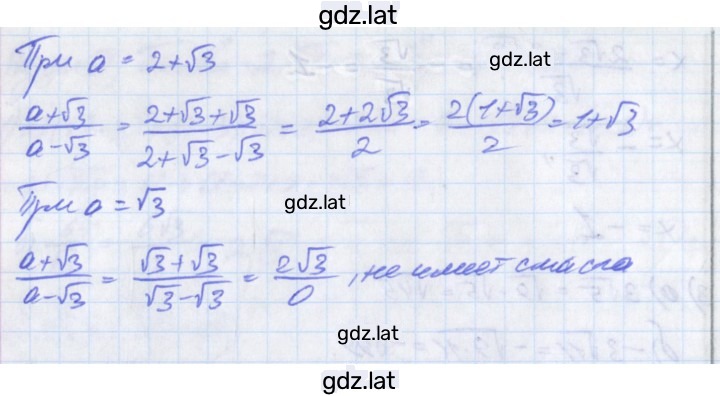 gdz.lat
При a = 2+√3
gdz.lat
(a+√3)/(a-√3) = (2+√3+√3)/(2+√3-√3) = (2+2√3)/2 = 2(1+√3)/2 = 1+√3
При a = √3
gdz.lat
(a+√3)/(a-√3) = (√3+√3)/(√3-√3) = 2√3/0, не имеет смысла
gdz.lat
gdz.lat